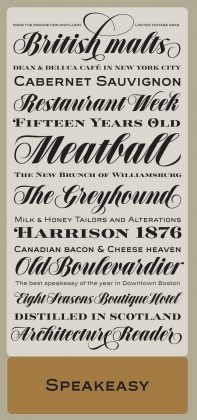 FROM THE PROHIBITION DISTILLERY LIMITED VINTAGE CASK
British malts
DEAN & DELUCA CAFÉ IN NEW YORK CITY
CABERNET SAUVIGNON
Restaurant Week
FIFTEEN YEARS OLD
Meatball
THE NEW BRUNCH OF WILLIAMSBURG
The Greyhound
MILK & HONEY TAILORS AND ALTERATIONS
HARRISON 1876
CANADIAN BACON & CHEESE HEAVEN
Old Boulevardier
The best speakeasy of the year in Downtown Boston
Eight Seasons Boutique Hotel
DISTILLED IN SCOTLAND
Architecture Reader
SPEAKEASY